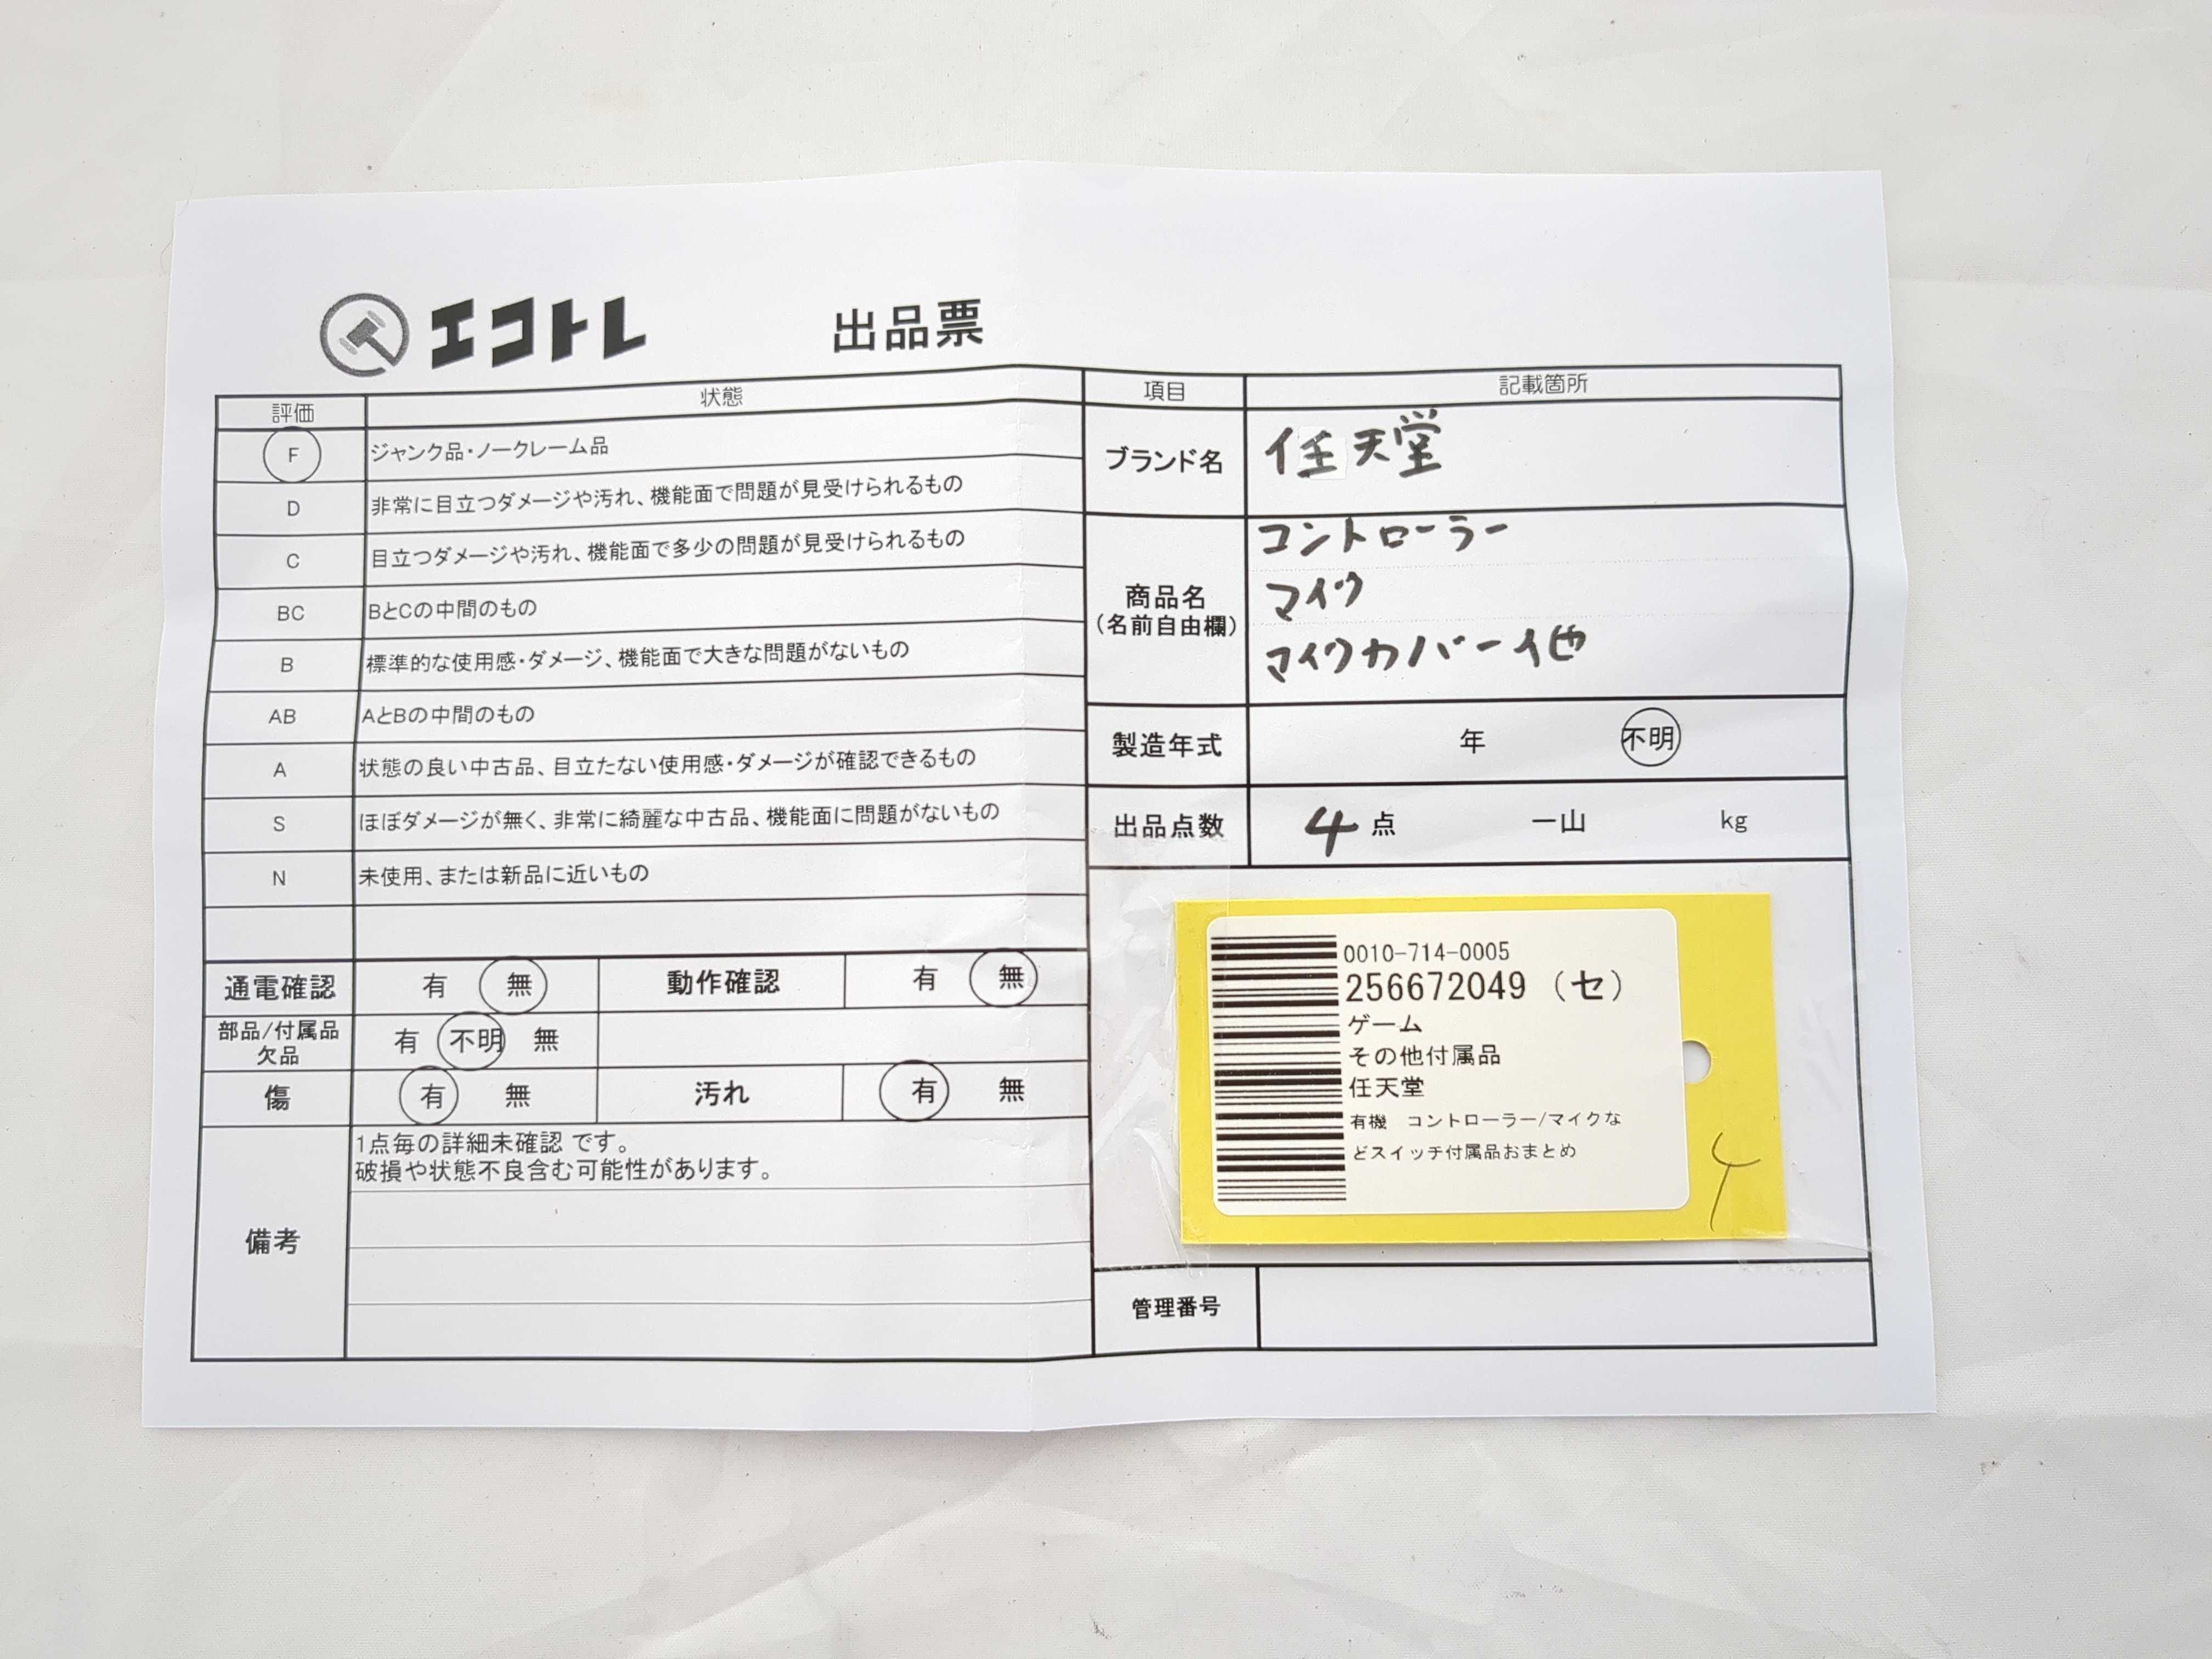 エコトレ 出品票
評価 状態
F ジャンク品・ノークレーム品
D 非常に目立つダメージや汚れ、機能面で問題が見受けられるもの
C 目立つダメージや汚れ、機能面で多少の問題が見受けられるもの
BC BとCの中間のもの
B 標準的な使用感・ダメージ、機能面で大きな問題がないもの
AB AとBの中間のもの
A 状態の良い中古品、目立たない使用感・ダメージが確認できるもの
S ほぼダメージが無く、非常に綺麗な中古品、機能面に問題がないもの
N 未使用、または新品に近いもの
通電確認 有 無 動作確認 有 無
部品/付属品
欠品 有 不明 無
傷 有 無 汚れ 有 無
備考
1点毎の詳細未確認 です。
破損や状態不良含む可能性があります。
項目 記載箇所
ブランド名 任天堂
商品名
(名前自由欄)
コントローラー
マイク
マイクカバー他
製造年式 年 不明
出品点数 4 点 一山 kg
0010-714-0005
256672049 (セ)
ゲーム
その他付属品
任天堂
有機 コントローラー/マイクな
どスイッチ付属品おまとめ
管理番号